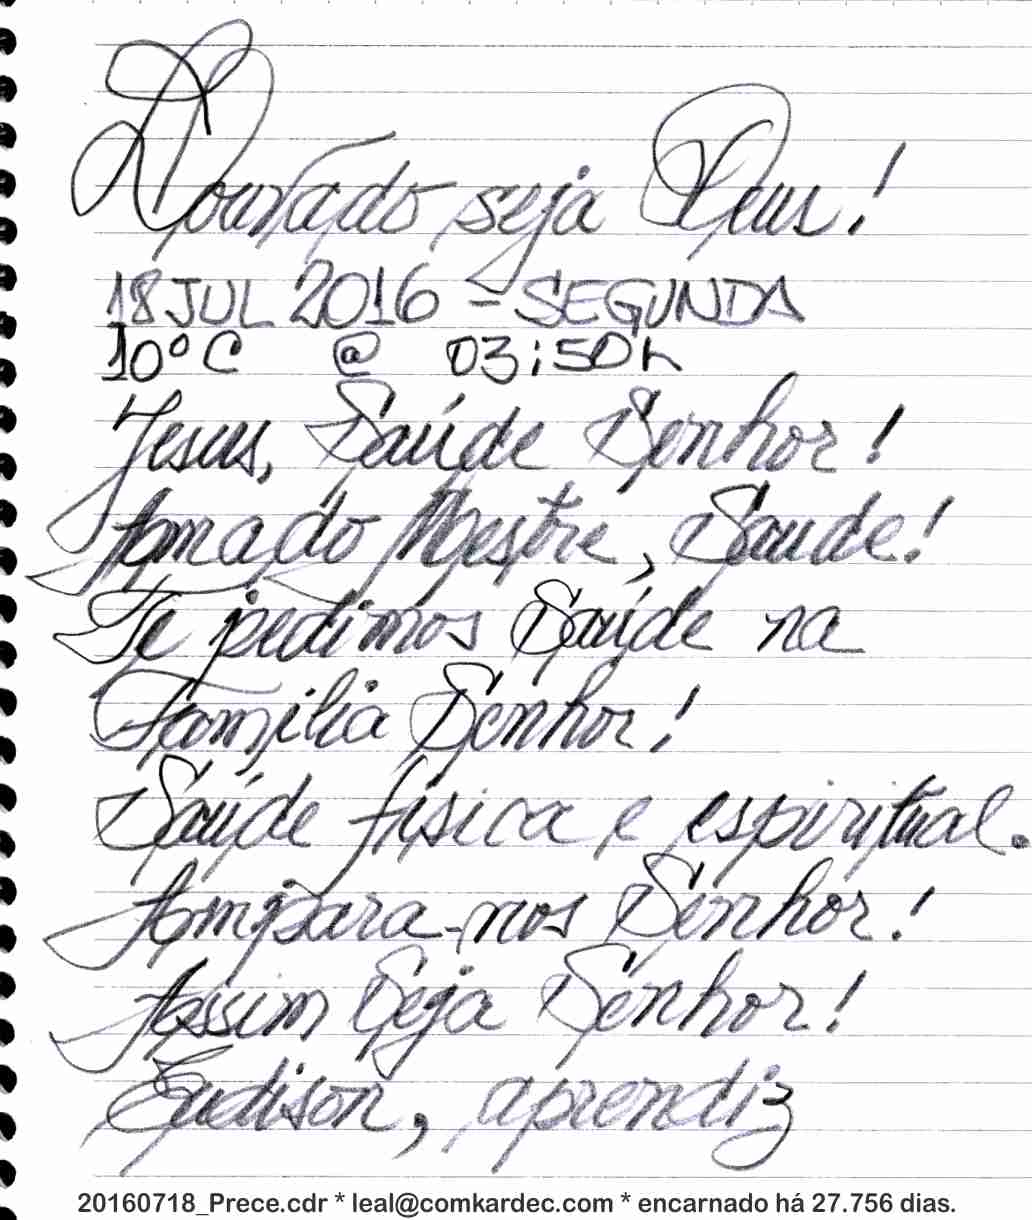 Louvado seja Deus!
18 JUL 2016 - SEGUNDA
10°C @ 03:50h
Jesus, Saúde Senhor!
Amado Mestre, Saude!
Te pedimos Saúde na
Família Senhor!
Saúde física e espiritual.
Ampara-nos Senhor!
Assim Seja Senhor!
Eudison, aprendiz
20160718_Prece.cdr * leal@comkardec.com * encarnado há 27.756 dias.